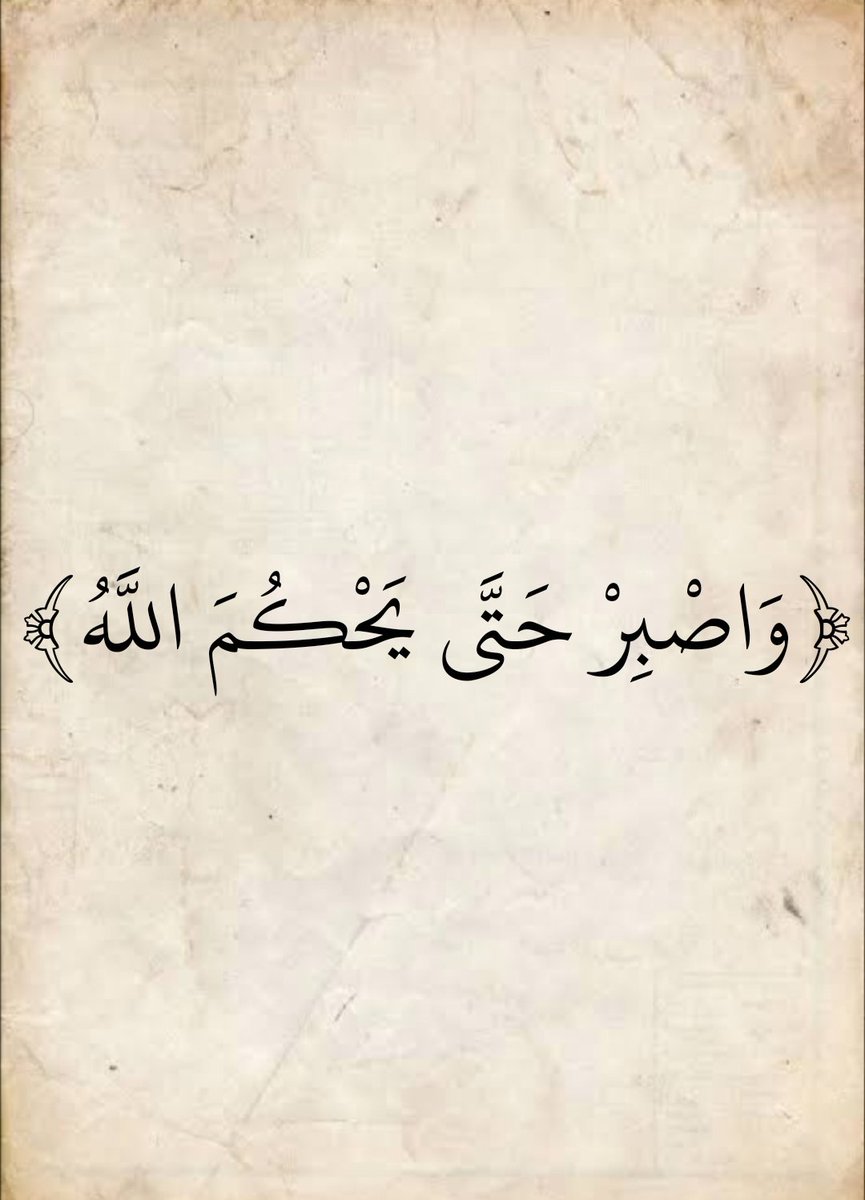 ﴿وَاصْبِرْ حَتَّى يَحْكُمَ اللَّهُ﴾